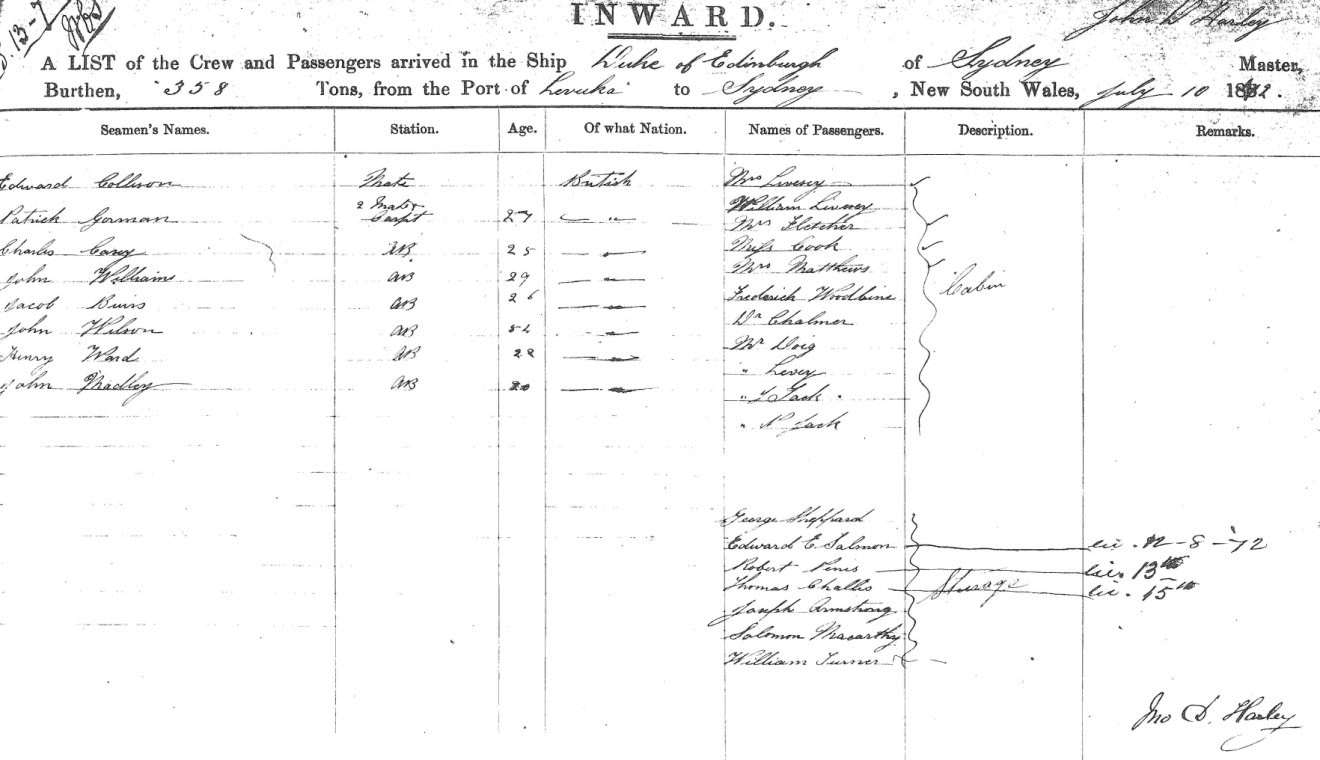 13-7
INWARD.
John D Harley
A LIST of the Crew and Passengers arrived in the Ship Duke of Edinburgh of Sydney Master,
Burthen, 358 Tons, from the Port of Levuka to Sydney, New South Wales, July 10 1872.
Seamen's Names. Station. Age. Of what Nation. Names of Passengers. Description. Remarks.
Edward Collison Mate British Mrs Livesey
William Livesey
Patrick Gorman 2 Mate & Carpt 27 " Mrs Fletcher
Charles Carey AB 25 Miss Cook
John Williams AB 29 Mrs Matthews
Jacob AB 26 Frederick Woodbine Cabin
John Wilson AB Dr Chalmer
Henry Ward AB Mr Doig
John Madley AB " Levey
" Jack
" Jack
George Sheppard
Edward E. Salmon lic. 12-8-72
Robert lic. 13th
Thomas Challis Sturage lic. 15th
Joseph Armstrong
Solomon Macarthy
William Turner
Jno D. Harley